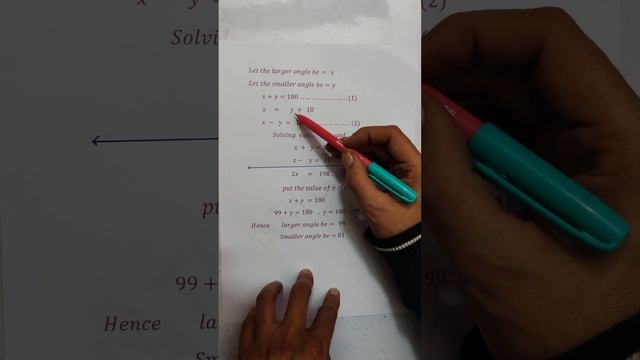 Let the larger angle be = x .
Let the smaller angle be = y
x + y = 180 ........................ (1)
x = y + 18
x − y = ........................ (2)
Solving and
x + y =
x − y =
2x = 198
put the value of x
x + y = 180
99 + y = 180 , y = 180
Hence larger angle be = 99
Smaller angle be = 81